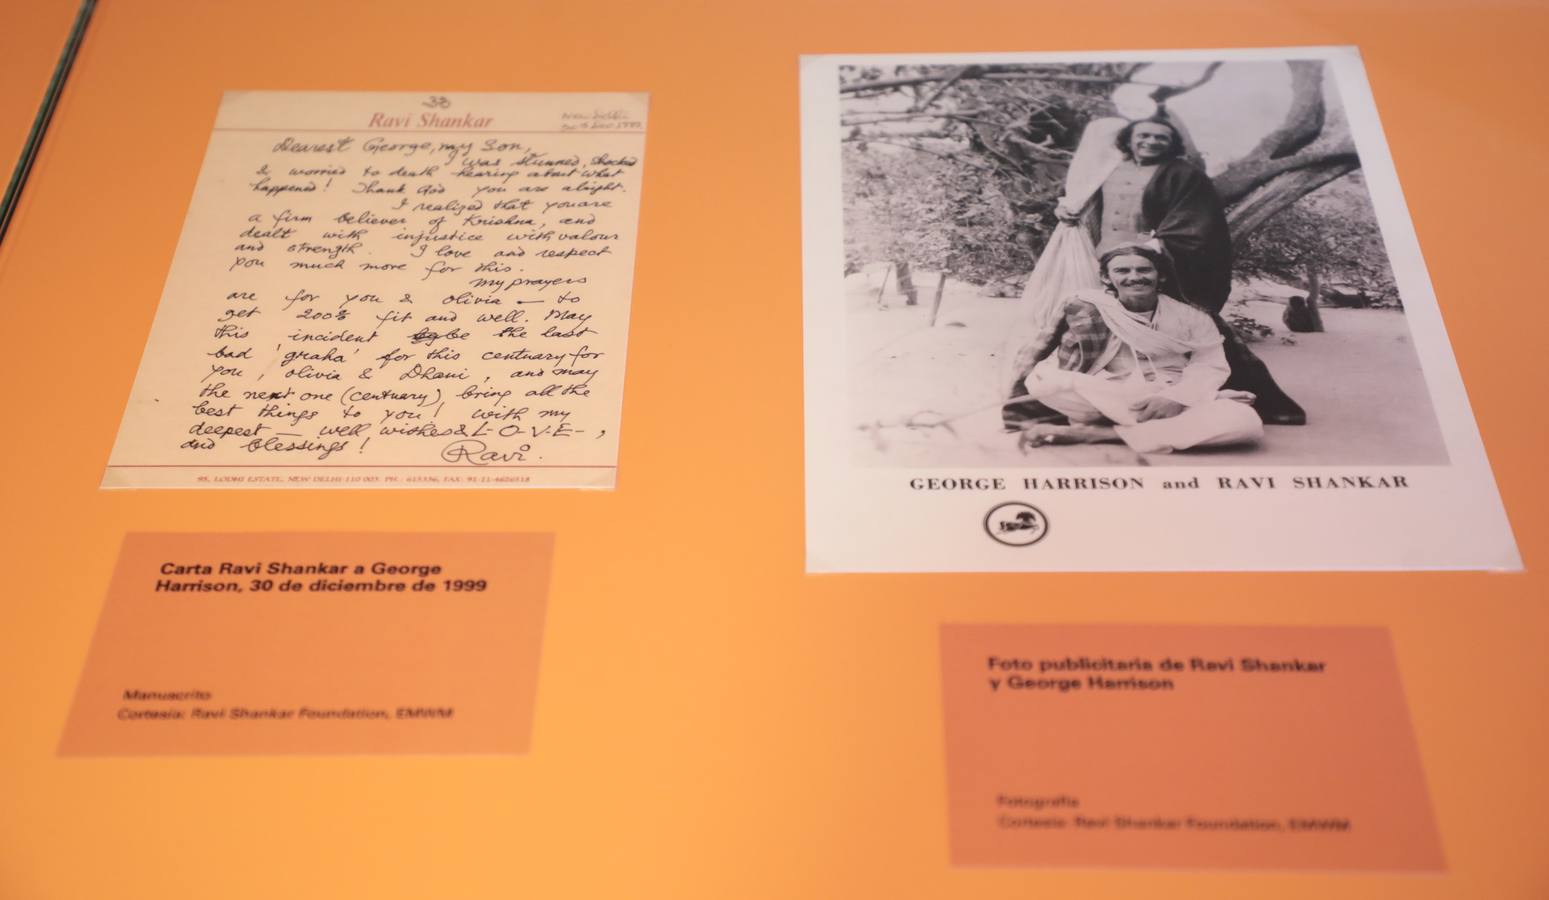 Ravi Shankar
New Delhi
30th Dec 1999
Dearest George, my Son,
I was stunned, shocked
& worried to death hearing about what
happened! Thank God you are alright.
I realized that you are
a firm believer of Krishna, and
dealt with injustice with valour
and strength. I love and respect
you much more for this.
my prayers
are for you & Olivia — to
get 200% fit and well. May
this incident be the last
bad 'graha' for this centuary for
you, Olivia & Dhani, and may
the next one (centuary) bring all the
best things to you! with my
deepest — well wishes & L-O-V-E-,
and blessings!
Ravi.
95, LODHI ESTATE, NEW DELHI-110 003. PH.: 615336, FAX: 91-11-4626518
GEORGE HARRISON and RAVI SHANKAR
Carta Ravi Shankar a George
Harrison, 30 de diciembre de 1999
Manuscrito
Cortesía: Ravi Shankar Foundation, EMWM
Foto publicitaria de Ravi Shankar
y George Harrison
Fotografía
Cortesía: Ravi Shankar Foundation, EMWM